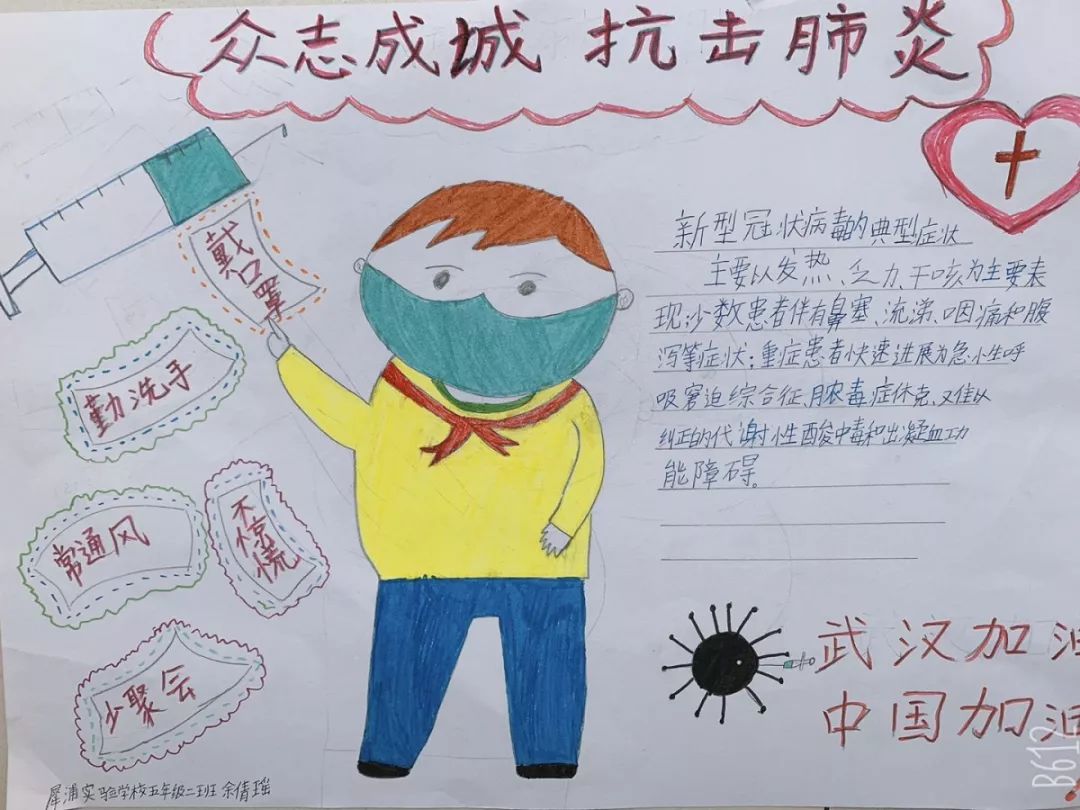 众志成城 抗击肺炎
戴口罩
勤洗手
常通风
不惊慌
少聚会
新型冠状病毒的典型症状
主要以发热、乏力、干咳为主要表
现;少数患者伴有鼻塞、流涕、咽痛和腹
泻等症状;重症患者快速进展为急小生呼
吸窘迫综合征、脓毒症休克、又佳以
纠正的代谢性酸中毒和出凝血功
能障碍。
武汉加油
中国加油
犀浦实验学校五年级二班 余倩瑶
B612